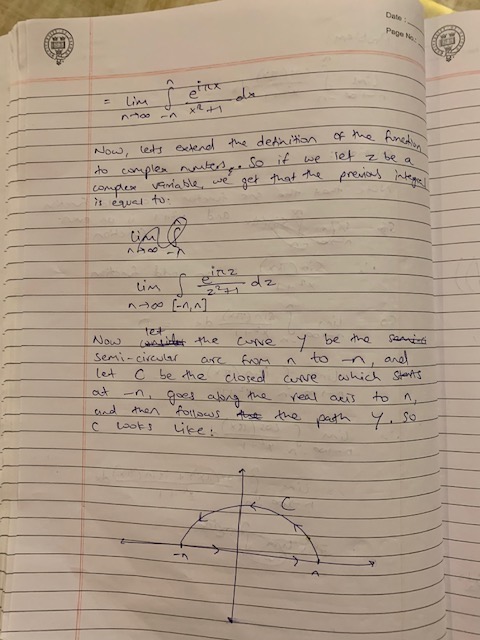 Date :
Page No.
= lim ∫_{-n}^{n} e^{iπx}/(x²+1) dx
n→∞
Now, lets extend the definition of the function
to complex numbers. So if we let z be a
complex variable, we get that the previous integral
is equal to:
lim
n→∞ -n
lim ∫ e^{iπz}/(z²+1) dz
n→∞ [-n,n]
Now let the curve γ be the
semi-circular arc from n to -n, and
let C be the closed curve which starts
at -n, goes along the real axis to n,
and then follows the path γ. So
C looks like:
C
-n
n